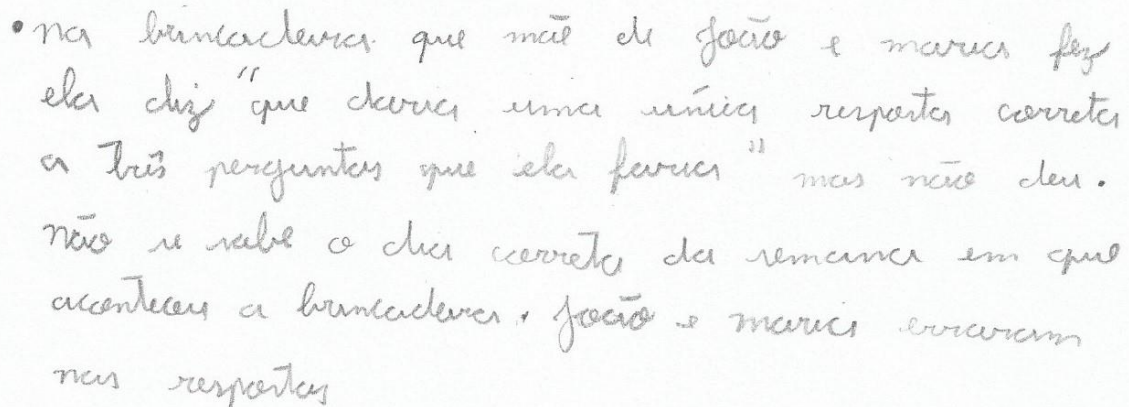 • na brincadeira que mãe de João e maria fez
ela diz "que daria uma única resposta correta
a três perguntas que ela faria" mas não deu.
não se sabe o dia correta da semana em que
aconteceu a brincadeira. João e maria erraram
nas respostas